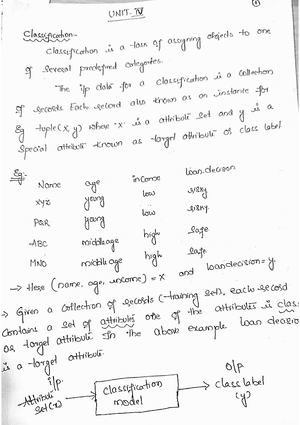 UNIT-IV
①
Classification-
Classification is a task of assigning objects to one
of several predefined categories.
The i/p data for a classification is a collection
of records Each record also known as an instance for
Eg tuple(x, y) where 'x' is a attribute set and y is a
special attribute known as target attribute or class label
Eg:-
Name age income loan.decision
xyz young low risky
PQR young low risky
ABC middleage high safe
MNO middleage high safe
→ Here (name, age, income) = x and loandecision = y
→ Given a collection of records (-training set), each record
contains a set of attributes one of the attributes is class
or target attribute In the above example loan decision
is a target attribute.
i/p
Attribute
set(x)
classification
model
O/P
class label
(y)